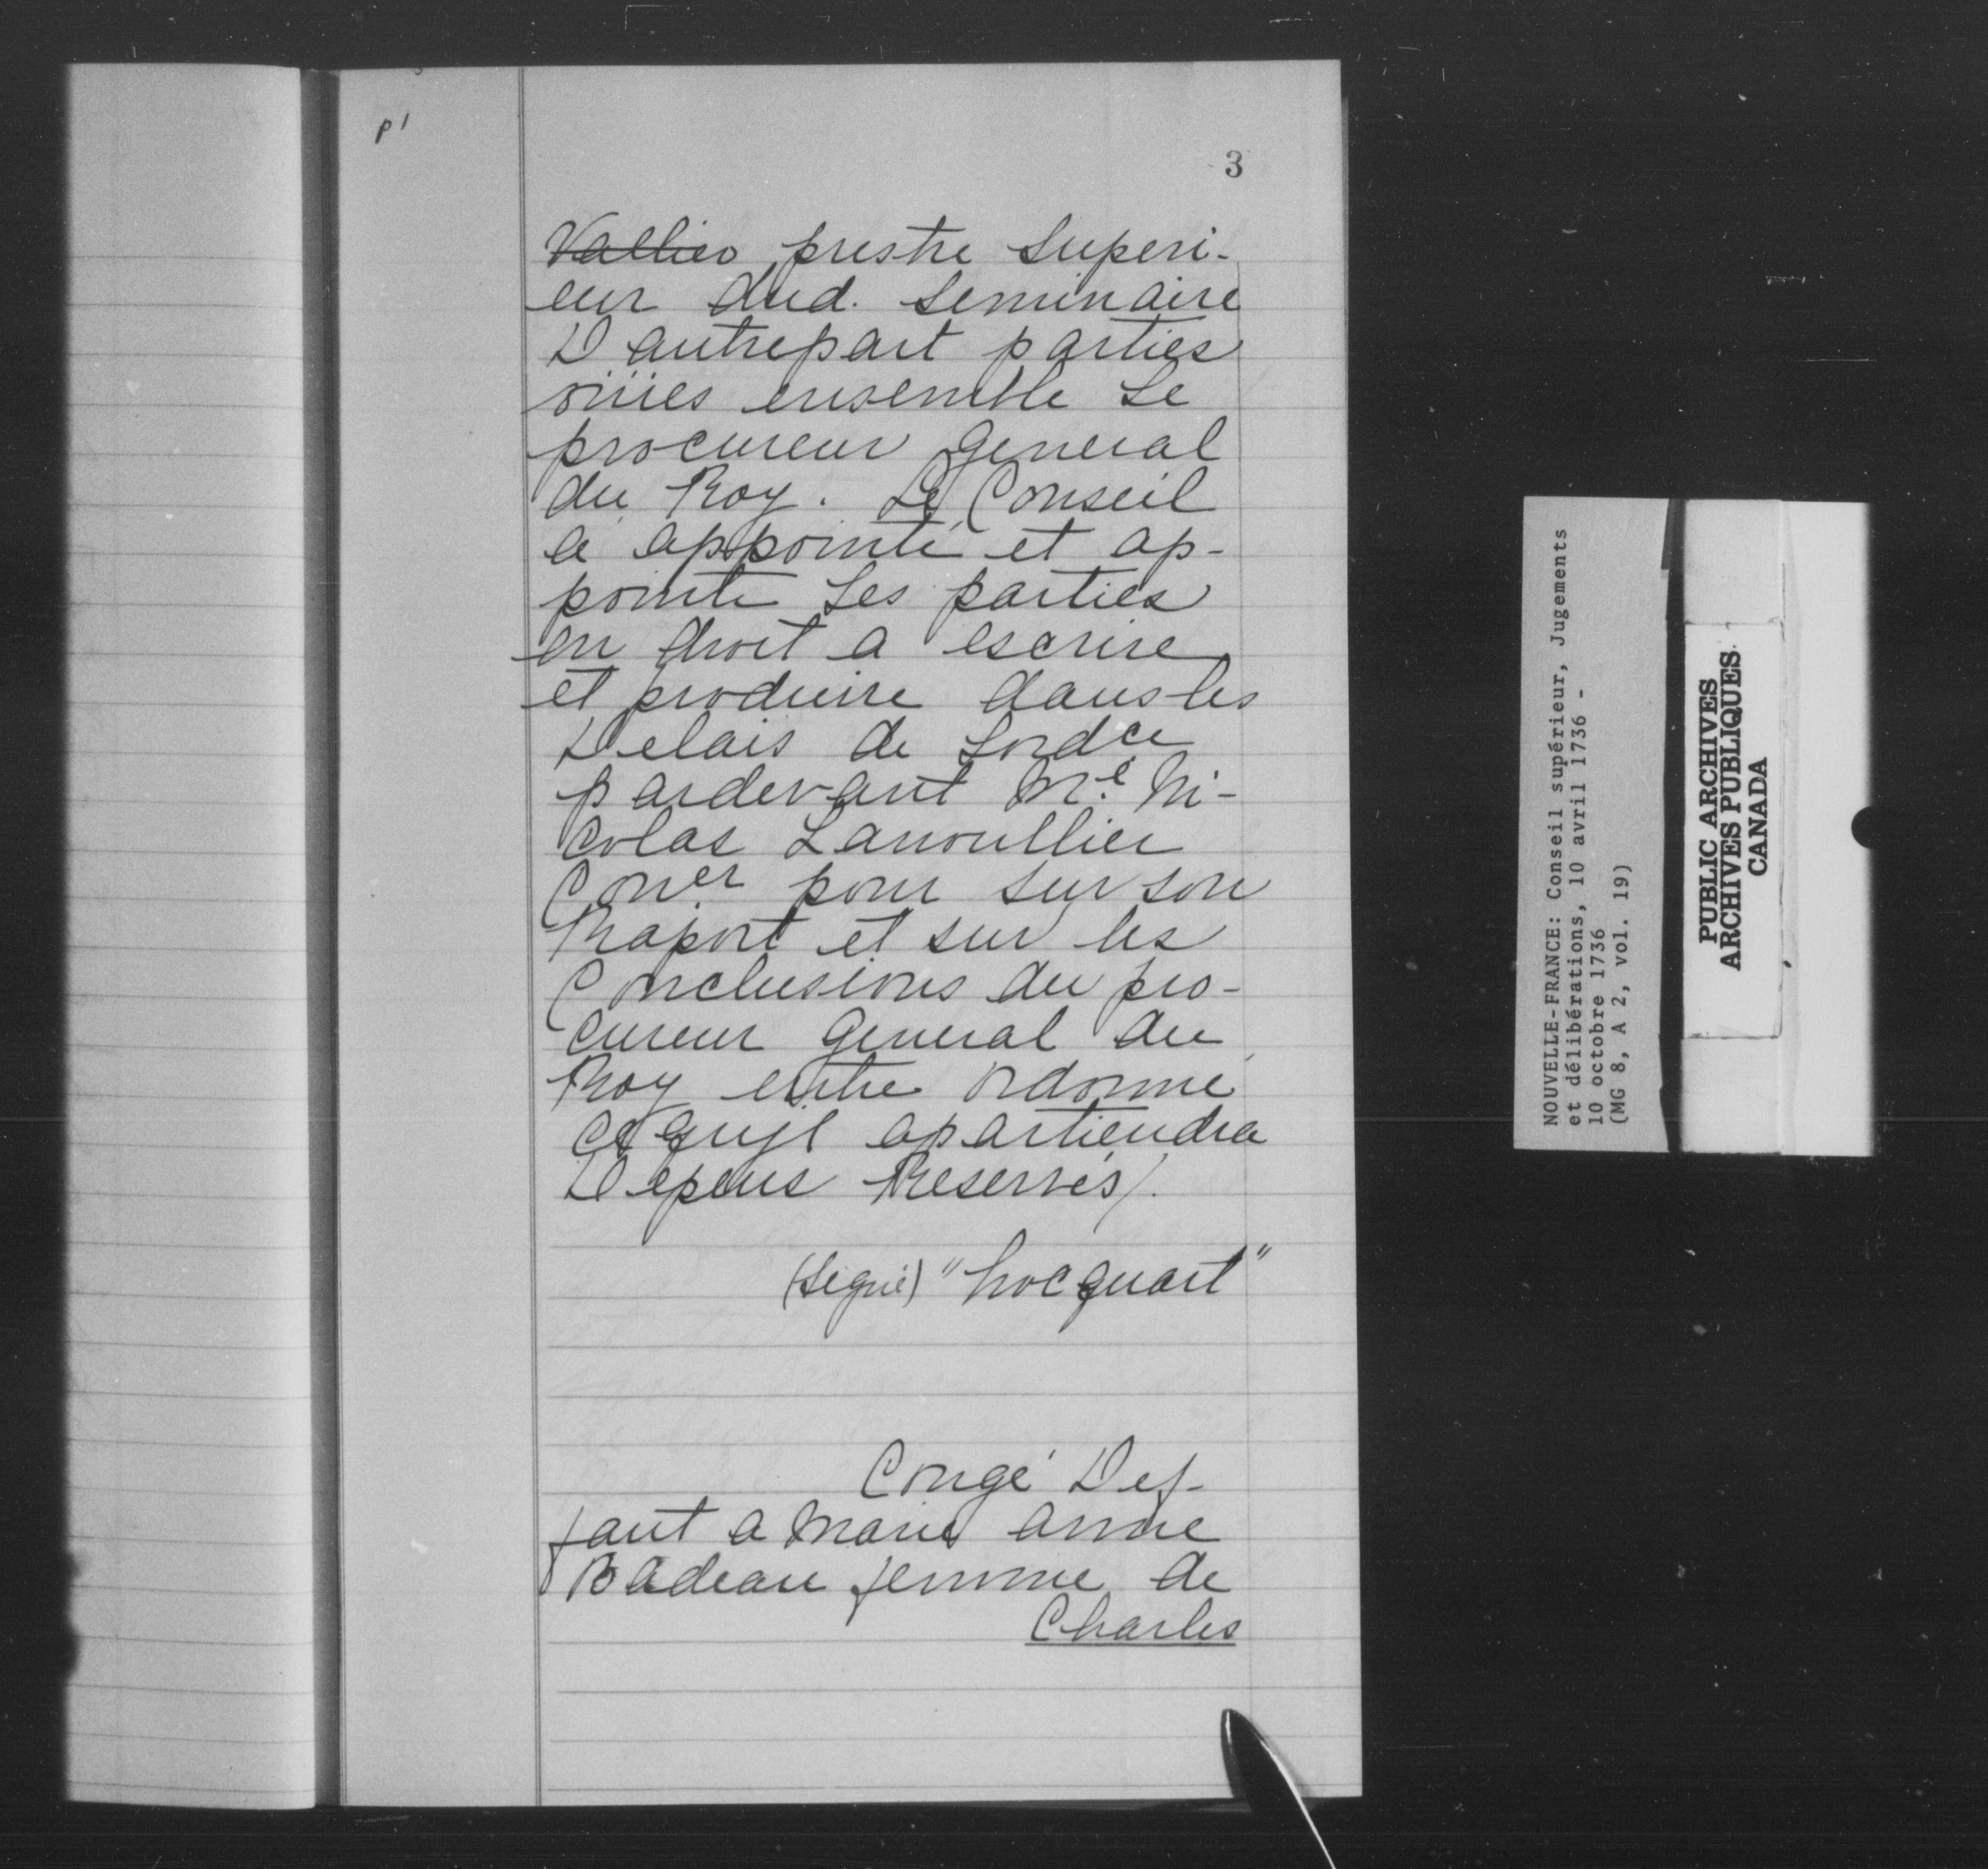 p1
3
Vallier prestre Superi-
eur dud. Seminaire
D'autrepart parties
oüies ensemble Le
procureur General
du Roy. Le Conseil
a appointé et ap-
pointe Les parties
en droit a escrire
et produire dans les
Delais de Lordce
pardevant Me. Ni-
colas Lanoullier
Coner pour sur son
Raport et sur les
Conclusions du pro-
cureur General du
Roy estre ordonné
ce quyl apartiendra
Depens Reservés/.
(Signé) "hocquart"
Congé Def-
faut a Marie anne
Badeau femme de
Charles
NOUVELLE-FRANCE: Conseil supérieur, Jugements
et délibérations, 10 avril 1736 -
10 octobre 1736
(MG 8, A 2, vol. 19)
PUBLIC ARCHIVES
ARCHIVES PUBLIQUES
CANADA